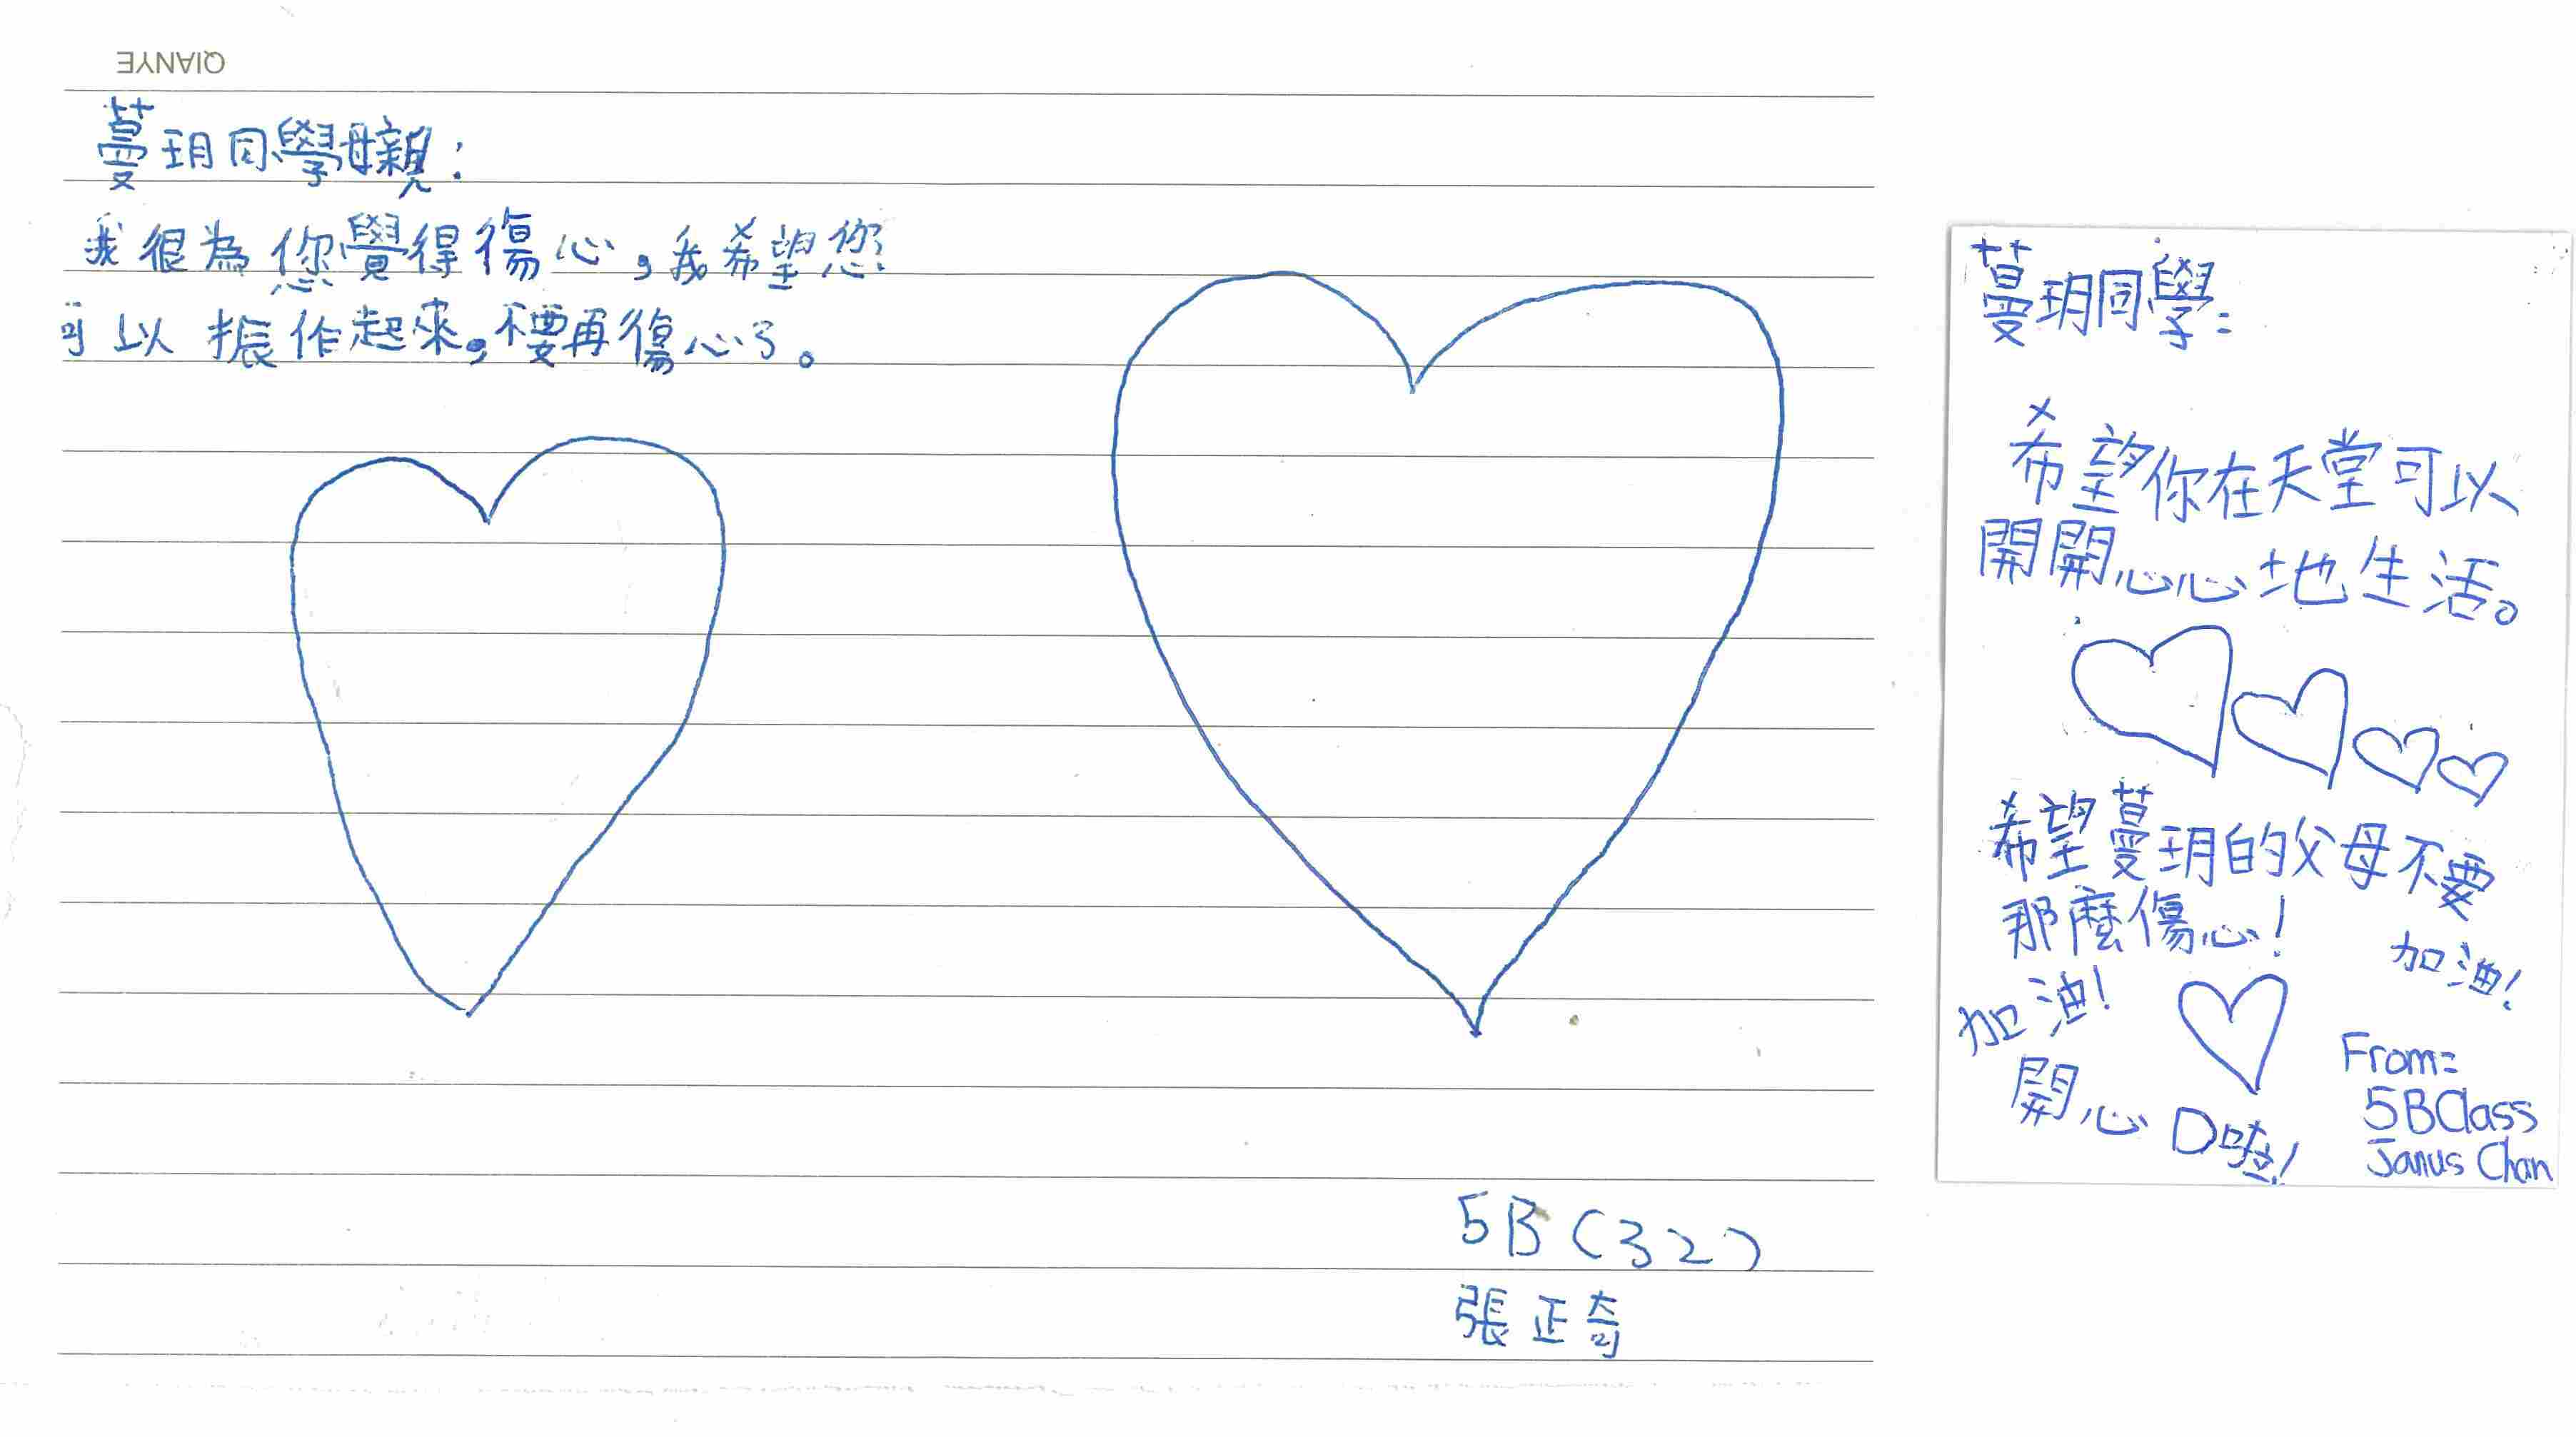 QIANYE
蔓玥同學母親：
我很為您覺得傷心，我希望您
可以振作起來，不要再傷心了。
5B（32）
張正奇
蔓玥同學：
希望你在天堂可以
開開心心地生活。
希望蔓玥的父母不要
那麼傷心！
加油！
加油！
開心D啦！
From:
5B Class
Janus Chan